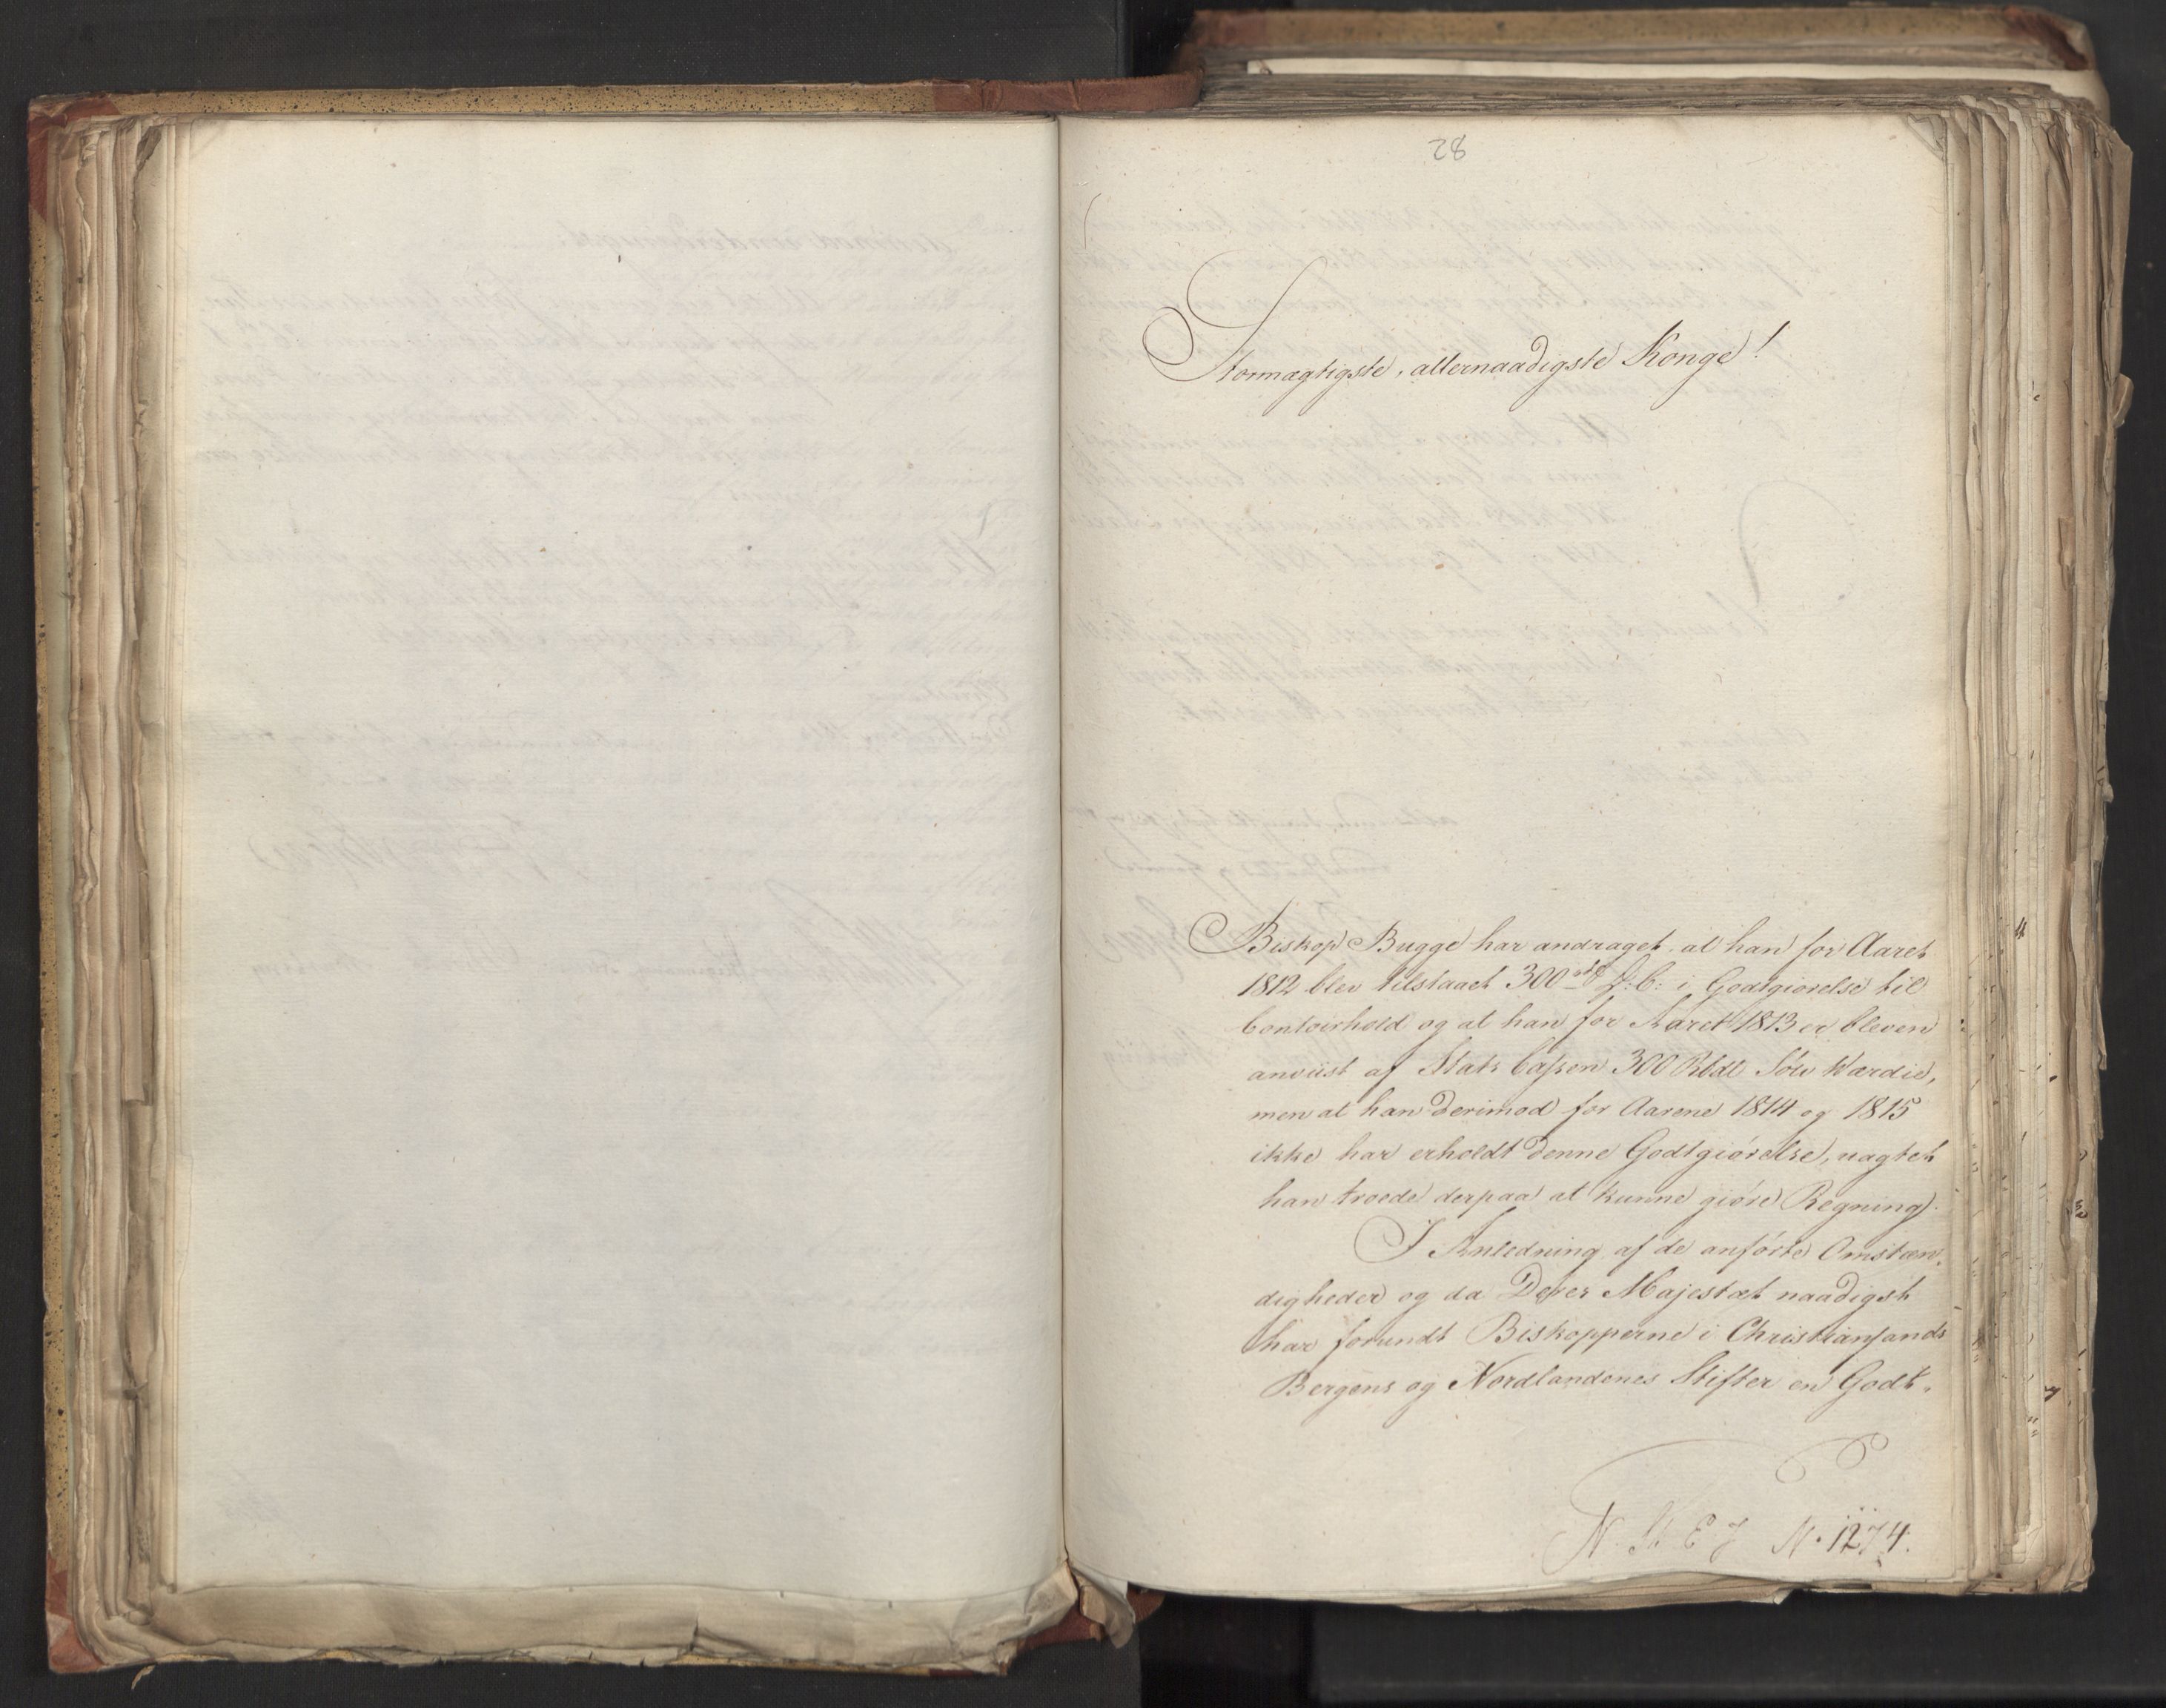 28
Stormægtigste, allernaadigste Konge!
Biskop Bugge har andraget, at han for Aaret
1812 blev tilstaaet 300 rd D: C: i Godtgiørelse til
Contoirhold og at han for Aaret 1813 er bleven
anviist af Stats Cassen 300 Rbdl Sølv Værdie,
men at han derimod for Aarene 1814 og 1815
ikke har erholdt denne Godtgiørelse, uagtet
han troede derpaa at kunne giøre Regning.
I Anledning af de anførte Omstæn-
digheder og da Deres Majestæt naadigst
har forundt Biskopperne i Christiansands
Bergens og Nordlandenes Stifter en Godt-
N. St. E J N. 1274.